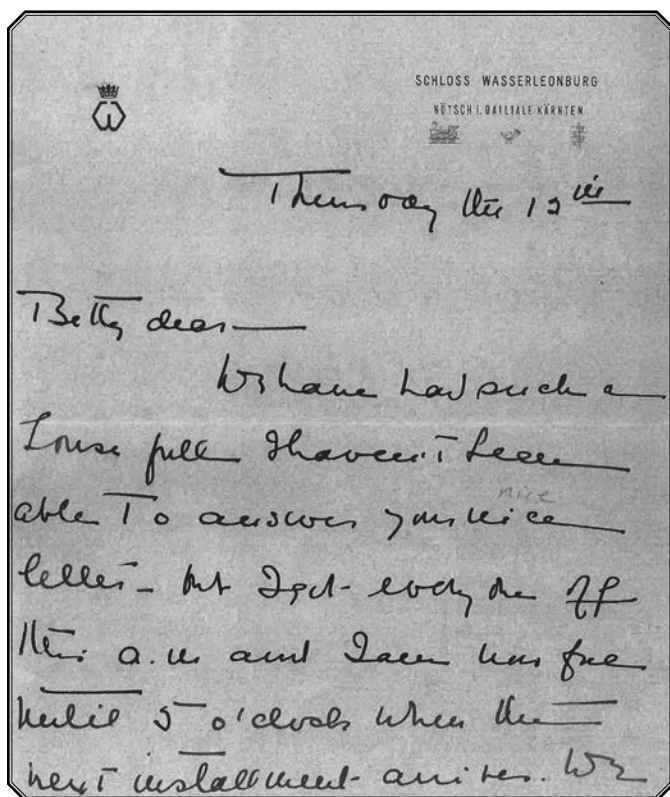 SCHLOSS WASSERLEONBURG
NÖTSCH I. GAILTALE KÄRNTEN
Thursday the 12th
Betty dear—
We have had such a
house full I haven't been
nice
able to answer your nice
letter - but I got everyone off
this a.m and I am now free
until 5 o'clock when the
next installment arrives. We